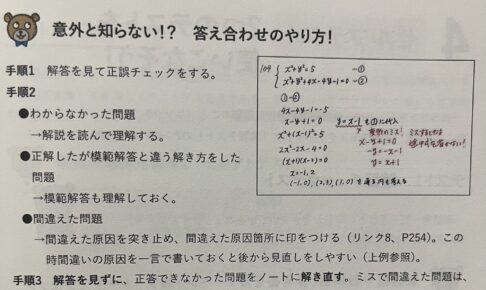 意外と知らない!? 答え合わせのやり方!
手順1 解答を見て正誤チェックをする。
手順2
●わからなかった問題
→解説を読んで理解する。
●正解したが模範解答と違う解き方をした
問題
→模範解答も理解しておく。
●間違えた問題
→間違えた原因を突き止め、間違えた原因箇所に印をつける(リンク8、P254)。この
時間違いの原因を一言で書いておくと後から見直しをしやすい(上例参照)。
手順3 解答を見ずに、正答できなかった問題をノートに解き直す。ミスで間違えた問題は、
109
x²+y²=5 —①
x²+y²+4x-4y-1=0 —②
①-②
4x-4y-1=-5
x-y+1=0
y=x-1 を①に代入
x²+(x-1)²=5
2x²-2x-4=0
(x+1)(x-2)=0
x=-1, 2
x-y+1=0
-y=-x-1
y=x+1